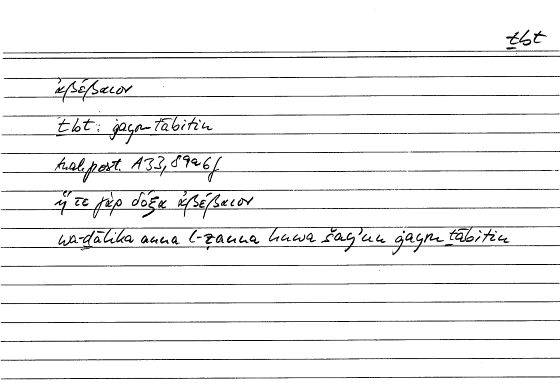 ṯbt
ἀβέβαιον
ṯbt: ġayru ṯābitin
Anal. post. A33, 89a6f
ἥ τε γὰρ δόξα ἀβέβαιον
wa-ḏālika anna l-ẓanna huwa šayʾun ġayru ṯābitin